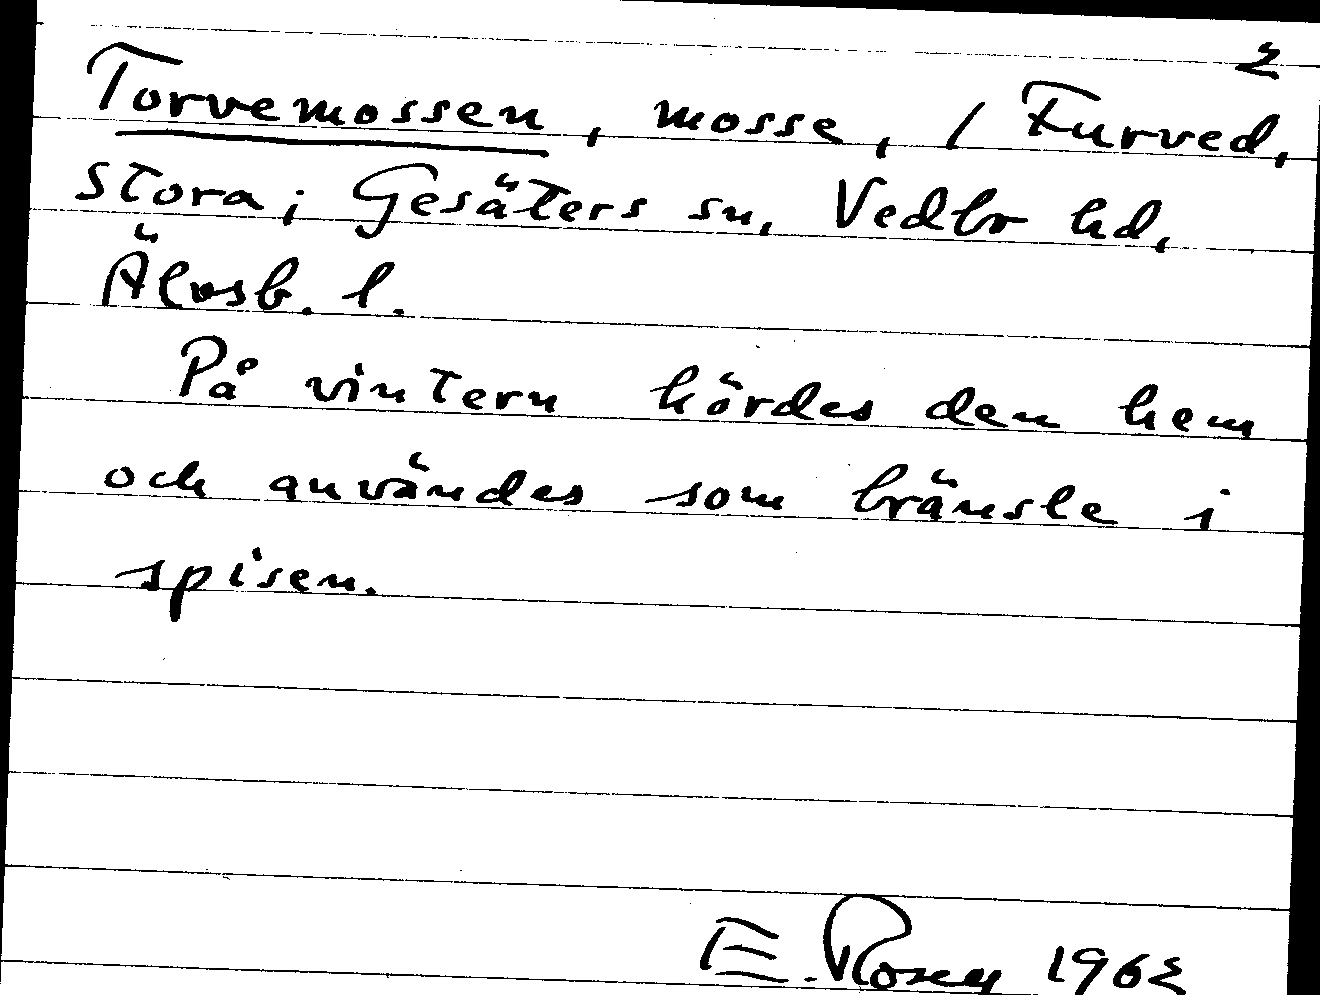 2
Torvemossen, mosse, / Furved,
stora; Gesäters sn, Vedbo hd,
Älvsb. l.
På vintern kördes den hem
och användes som bränsle i
spisen.
E. Rosen 1962